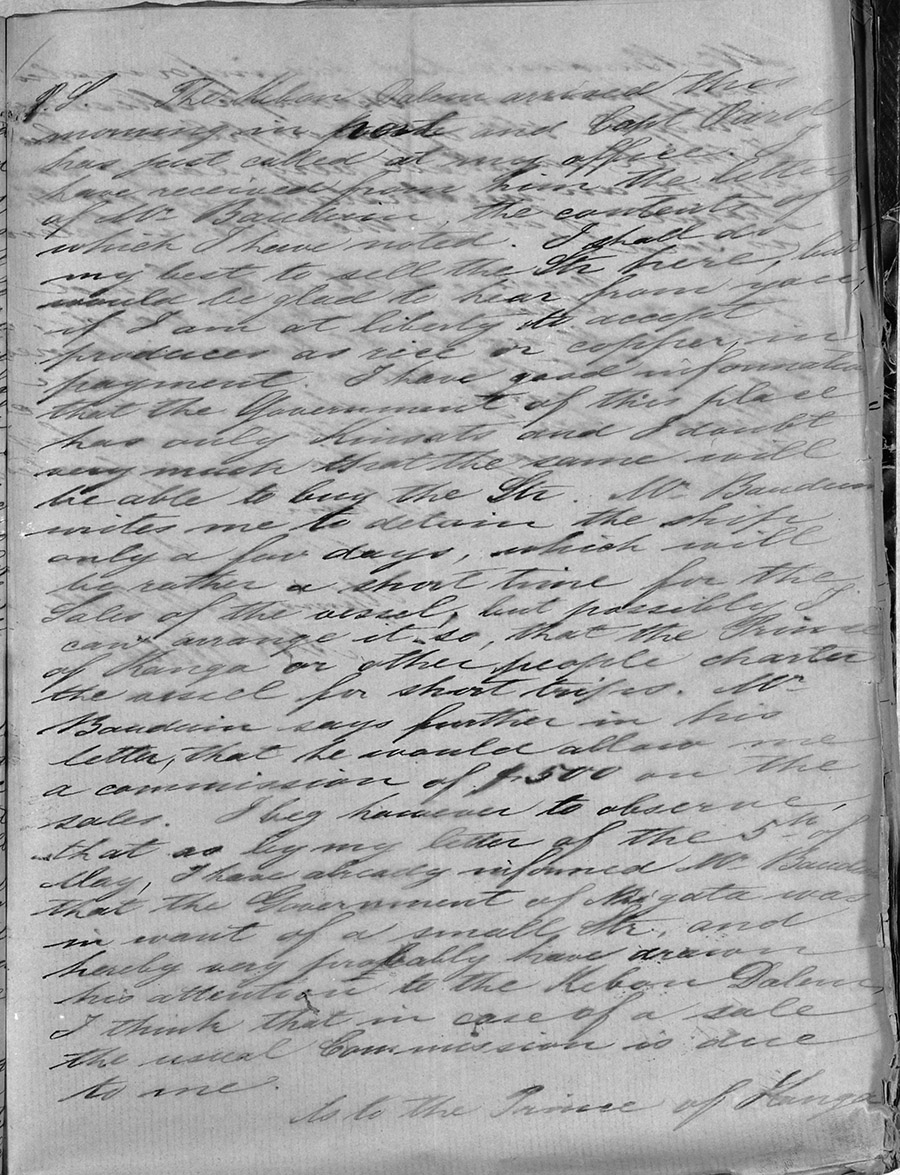 P.S. The Kebon Dalem arrived this
morning in port and Capt
has just called at my office. I
have received from him the letter
of Mr. Bauduin, the contents of
which I have noted. I shall do
my best to sell the Str here, but
would be glad to hear from you,
if I am at liberty to accept
produces as rice or copper, in
payment. I have good information
that the Government of this place
has only Kinsats and I doubt
very much that the same will
be able to buy the Str. Mr. Bauduin
writes me to detain the ship
only a few days, which will
be rather a short time for the
Sales of the vessel, but possibly I
can arrange it so, that the Prince
of Kanga or other people charter
the vessel for short trips. Mr.
Bauduin says further in his
letter, that he would allow me
a commission of $500 on the
sales. I beg however to observe,
that as by my letter of the 5th of
May, I have already informed Mr. Bauduin
that the Government of Niigata was
in want of a small Str. and
hereby very probably have drawn
his attention to the Kebon Dalem
I think that in case of a sale
the usual Commission is due
to me.
As to the Prince of Kanga